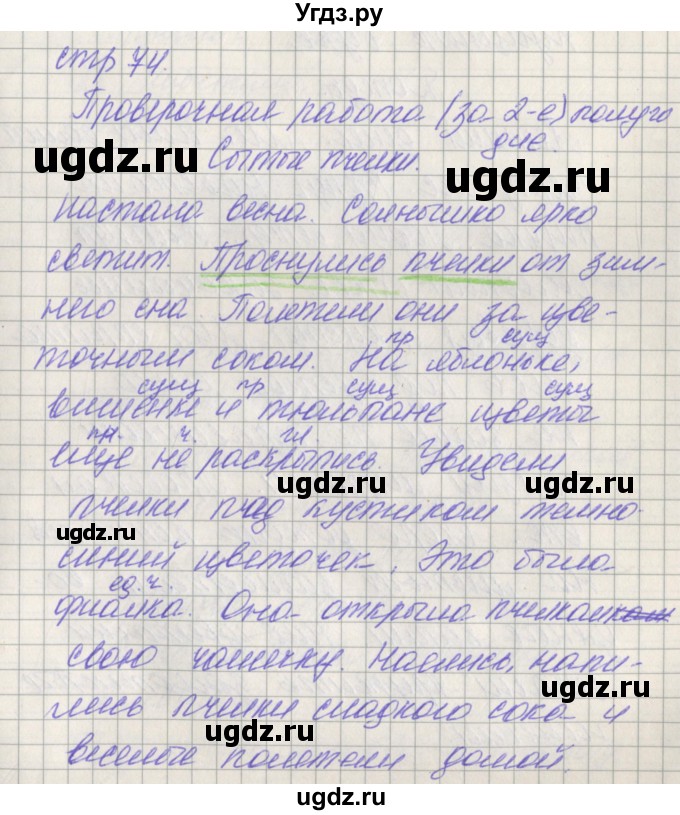 Угдз.ру
стр 74.
Проверочная работа (за 2-е) полуго
дие.
ugdz.ru
Сытые пчелки.
ugdz.ru
Настала весна. Солнышко ярко
светит. Проснулись пчелки от зим-
него сна. Полетели они за цве-
точным соком. На яблоньке,
пр сущ
вишенке и тюльпане цветы
сущ пр сущ сущ
еще не раскрылись. Увидели
ч. гл.
ugdz.ru ugdz.ru
пчелки под кустиком темно
ugdz.ru
синий цветочек. Это была
фиалка. Она открыла пчелкам
ед.ч.
свою чашечку. Наелись, напи-
ugdz.ru
лись пчелки сладкого сока и
ugdz.ru
веселые полетели домой.
ugdz.ru